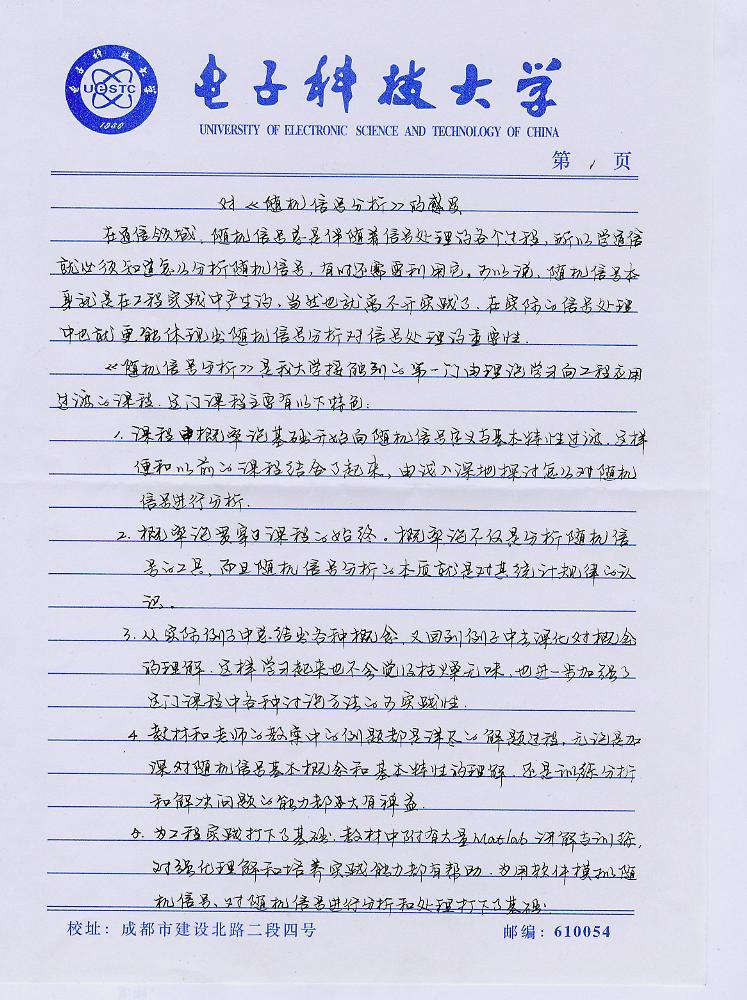 电子科技大学
UESTC
1956
电子科技大学
UNIVERSITY OF ELECTRONIC SCIENCE AND TECHNOLOGY OF CHINA
第 1 页
对《随机信号分析》的感受
在通信领域，随机信号总是伴随着信号处理的各个过程，所以学通信
就必须知道怎么分析随机信号，有时还需要利用它。可以说，随机信号本
身就是在工程实践中产生的，当然也就离不开实践了，在实际的信号处理
中也就更能体现出随机信号分析对信号处理的重要性.
《随机信号分析》是我大学接触到的第一门由理论学习向工程应用
过渡的课程.这门课程主要有以下特色：
1. 课程由概率论基础开始向随机信号定义与基本特性过渡，这样
便和以前的课程结合了起来，由浅入深地探讨怎么对随机
信号进行分析.
2. 概率论贯穿课程的始终。概率论不仅是分析随机信
号的工具，而且随机信号分析的本质就是对其统计规律的认
识。
3. 从实际例子中总结出各种概念，又回到例子中去深化对概念
的理解.这样学习起来也不会觉得枯燥无味，也进一步加强了
这门课程中各种讨论方法的实践性.
4. 教材和老师的教案中的例题都是详尽的解题过程，无论是加
深对随机信号基本概念和基本特性的理解，还是训练分析
和解决问题的能力都大有裨益.
5. 为工程实践打下了基础.教材中附有大量Matlab讲解与训练，
对强化理解和培养实践能力都有帮助.为用软件模拟随
机信号、对随机信号进行分析和处理打下了基础.
校址：成都市建设北路二段四号 邮编：610054